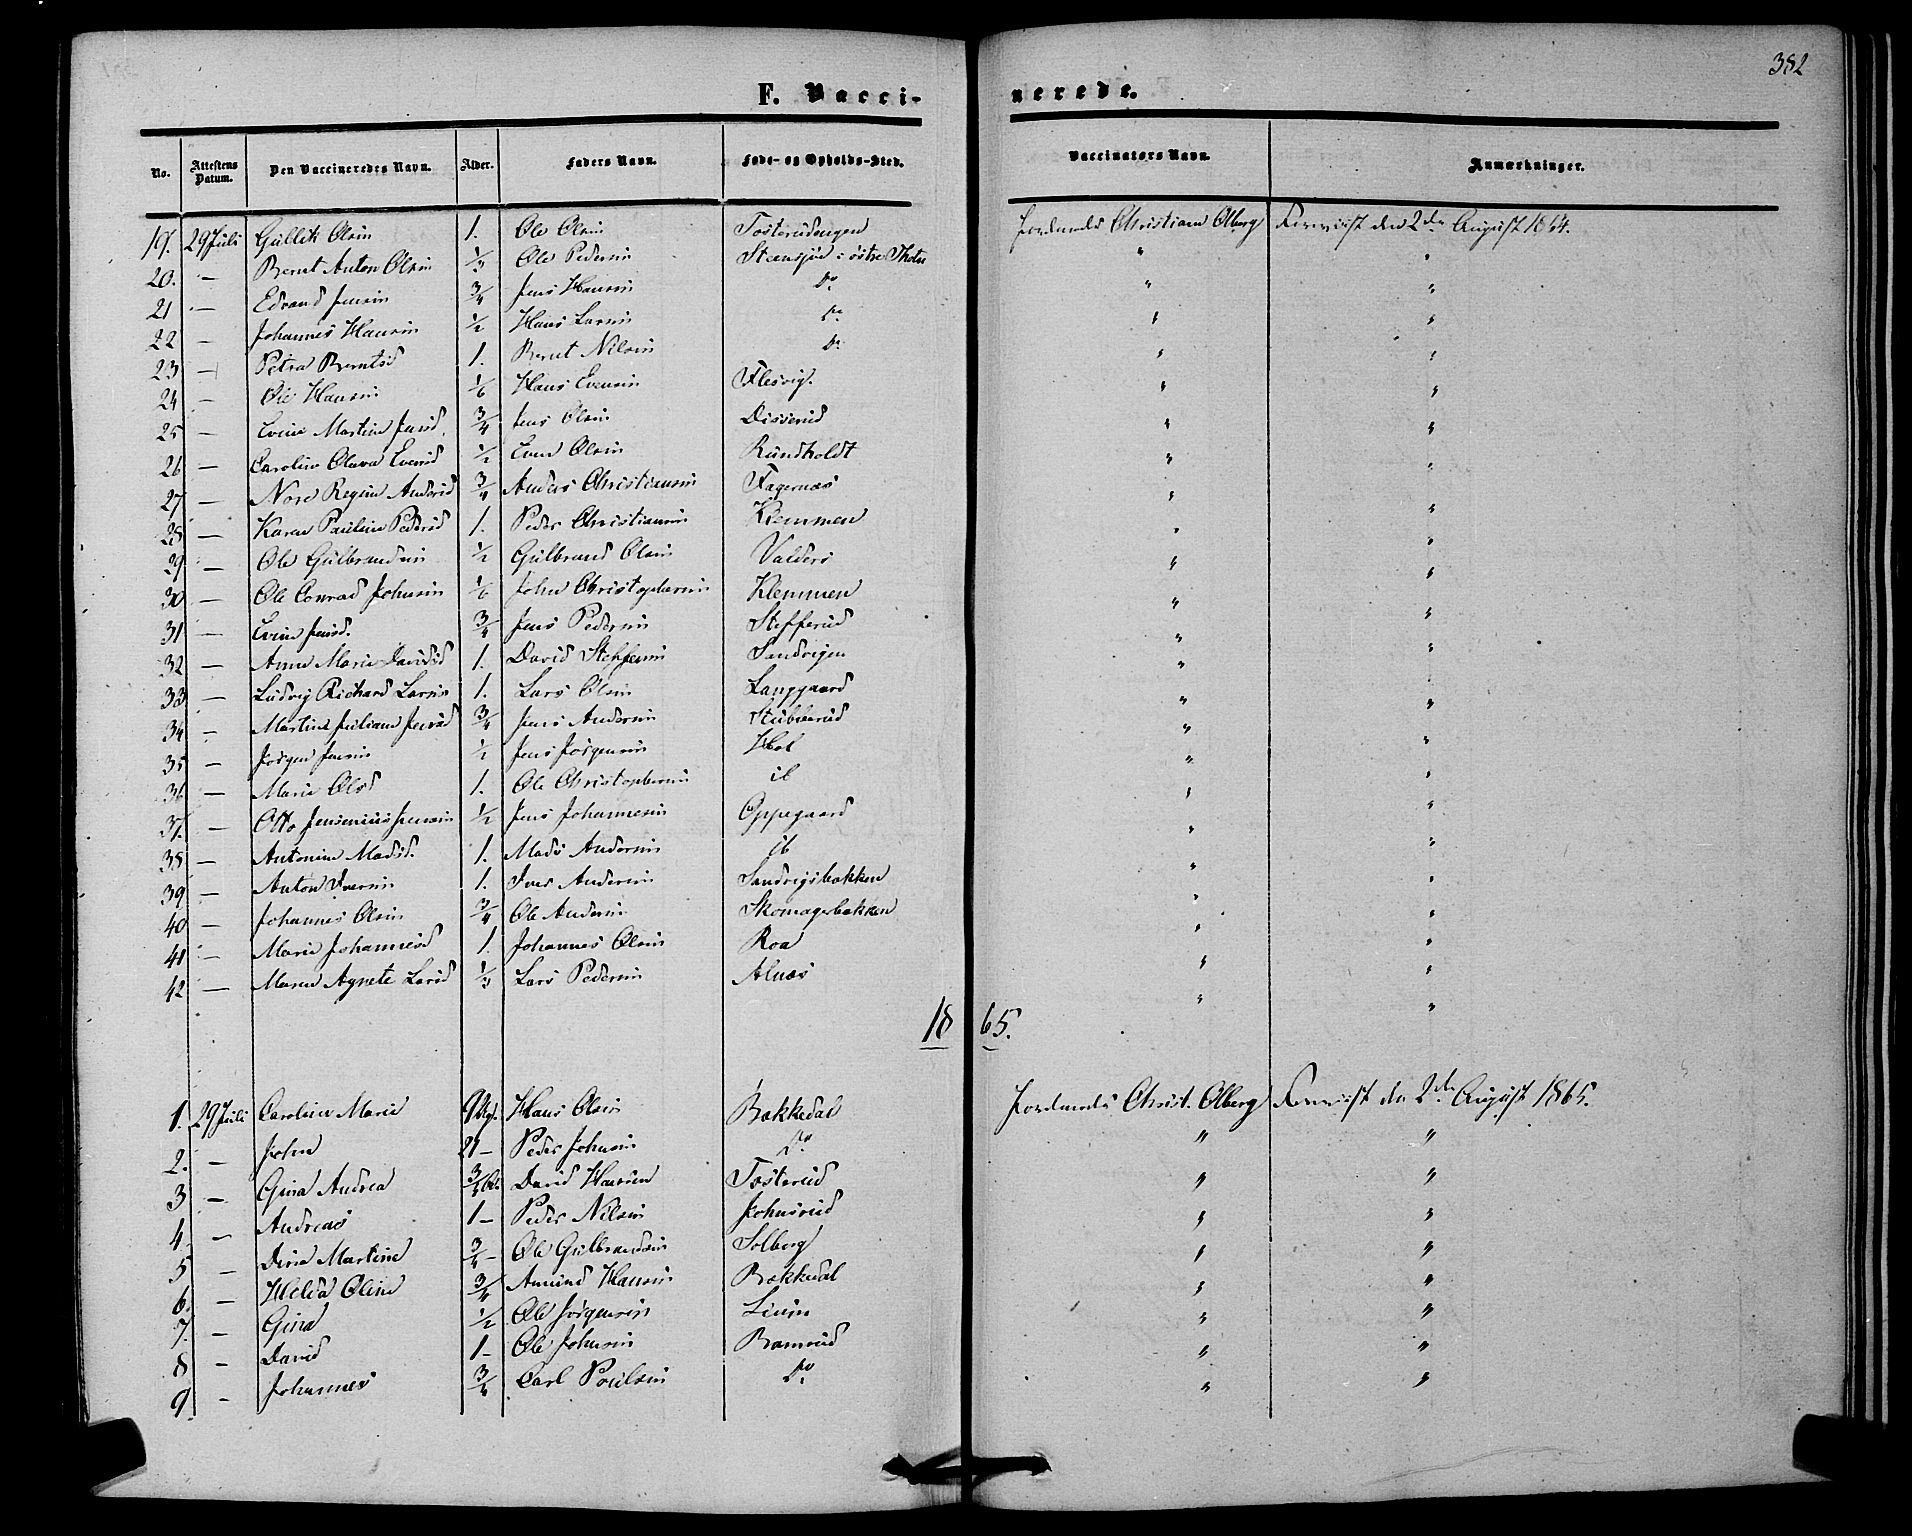 382
F. Vacci- nerede.
No. Attestens Datum. Den Vaccineredes Navn. Alder. Faders Navn. Føde- og Opholds-Sted. Vaccinators Navn. Anmærkninger.
19. 29 Juli Gullik Olsen 1. Ole Olsen Tosterudengen Christiane Olberg den 2den August 1864.
20. — Bernt Anton Olsen 1/3 Ole Pedersen Stensjøe i østre Thoten " "
21 — Edvard Jensen 3/4 Jens Hansen Do " "
22 — Johannes Hansen 1/2 Hans Larsen Do " "
23 — Petra Berntsd 1. Bernt Nilsen Do " "
24 — Ole Hansen 1/6 Hans Evensen Flesvig. " "
25 — Evine Martine Jensd. 3/4 Jens Olsen Disserud " "
26 — Caroline Olava Evensd 1/2 Even Olsen Rundholdt " "
27 — Regine Andersd 3/4 Anders Christiansen Fagernæs " "
28 — Karen Pauline Pedersd 1. Peder Christiansen Klemmen " "
29 — Ole Gulbrandsen 1/2 Gulbrand Olsen Valders " "
30 — Ole Conrad Johnsen 1/6 John Christophersen Klemmen " "
31 — Evine Jensd. 3/4 Jens Pedersen Stefferud " "
32 — Anne Marie Davidsd 1. David Steffensen Sandvigen " "
33 — Ludvig Richard Larsen 1. Lars Olsen Langgaard " "
34 — Martine Juliane Jensd 3/4 Jens Andersen Stubberud " "
35 — Jørgen Jensen 1/2 Jens Jørgensen Hol " "
36 — Marie Olsd 1. Ole Christophersen ib " "
37. — Otto Jensenius Jensen 1/2 Jens Johannesen Oppegaard " "
38 — Antonine Madsd. 1. Mads Andersen ib " "
39 — Anton Iversen 1. Iver Andersen Sandvigsbakken " "
40 — Johannes Olsen 3/4 Ole Andersen Skomagerbakken " "
41 — Marie Johannesd 1. Johannes Olsen Roa " "
42 — Maren Agnete Larsd 1/3 Lars Pedersen Alnæs " "
1865.
1. 29 Juli Caroline Marie 9 Hans Olsen Bakkedal Christ. Olberg den 2den August 1865.
2. — John 21 — Peder Johnsen Do " "
3 — Gina Andrea 3/4 David Hansen Tosterud " "
4. — Andreas 1 — Peder Nilsen Johnsrud " "
5 — Dina Martine 3/4 — Ole Gulbrandsen Solberg " "
6. — Helda Oline 3/4 Amund Hansen Bakkedal " "
7. — Gina 1/2 Ole Jørgensen " "
8 — David 1 — Ole Johnsen Ramsrud " "
9 — Johannes 3/4 Carl Poulsen Do " "